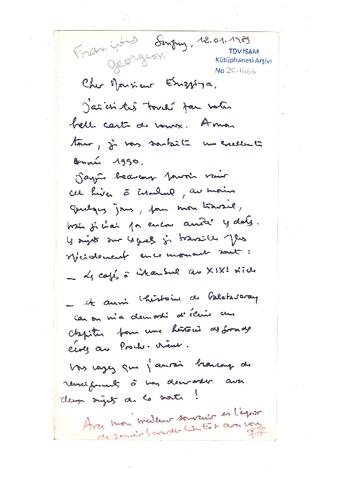 François
Georgeon
12.01.1989
TDV İSAM
Kütüphanesi Arşivi
No 2E.1466
Cher Monsieur Eruzziya,
J'ai été très touché par votre
belle carte de voeux. A mon
tour, je vous souhaite une excellente
Année 1990.
J'espère beaucoup pouvoir venir
cet hiver à Istanbul, au moins
quelques jours, pour mon travail,
mais je n'ai pas encore arrêté les dates.
Les sujets sur lesquels je travaille plus
spécialement en ce moment sont :
– Les cafés à Istanbul au XIXè siècle
– et aussi l'histoire de Galatasaray
car on m'a demandé d'écrire un
chapitre pour une histoire des grandes
écoles au Proche-Orient.
Vous voyez que j'aurai beaucoup de
renseignements à vous demander sur
deux sujets de ce genre !
Avec mon meilleur souvenir et l'espoir
de pouvoir bavarder bientôt avec vous